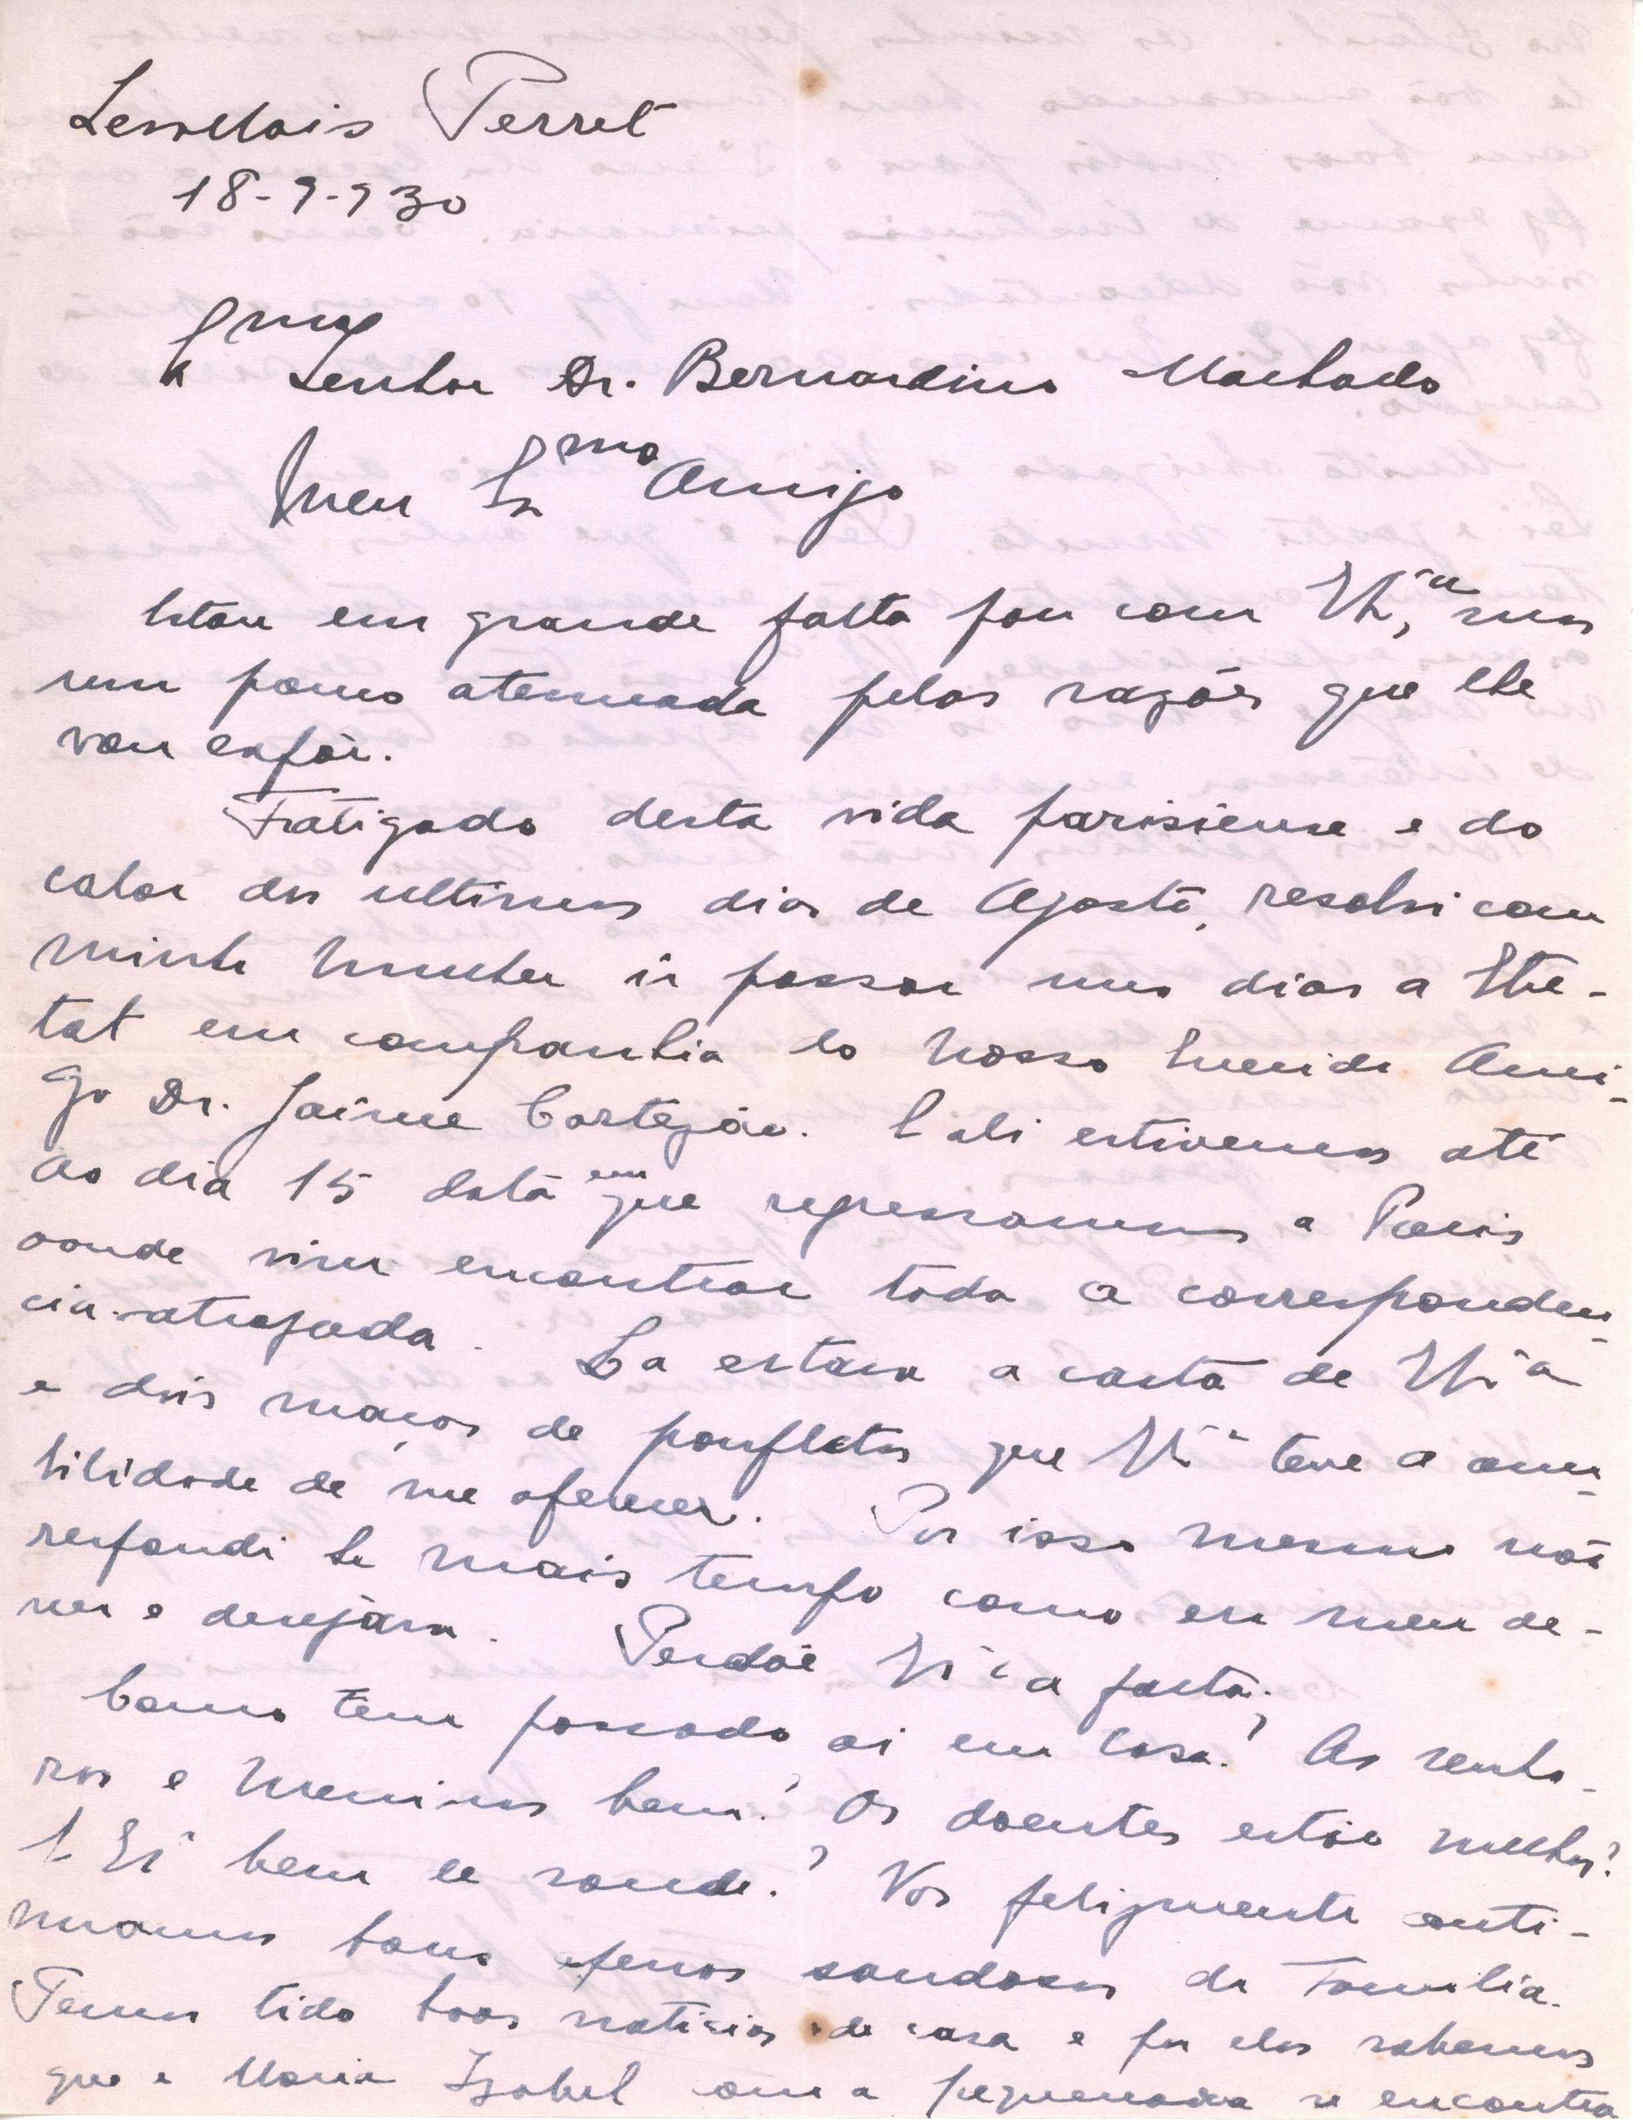 Levallois Perret
18-9-930
Exmo
Senhor Dr. Bernardino Machado
Meu Exmo Amigo
Estou em grande falta para com V. Exa, mas
um pouco atenuada pelas razões que lhe
vou expôr.
Fatigado desta vida parisiense e do
calor dos ultimos dias de Agosto, resolvi com
minha mulher ir passar uns dias a Etre-
tat em companhia do nosso querido Ami-
go Dr. Jaime Cortezão. E ali estivemos até
ao dia 15 data em que regressamos a Paris
aonde vim encontrar toda a corresponden-
cia atrazada. Lá estava a carta de V. Exa
e dois maços de panfletos que V. Exa teve a ama-
bilidade de me oferecer. Por isso mesmo não
respondi ha mais tempo como era meu de-
ver e desejára. Perdôe V. Exa a falta.
Como tem passado ai em casa? As senho-
ras e meninos bem? Os doentes estão melhor?
E V. Exa bem de saude? Nós felizmente conti-
nuamos bons apenas saudosos da Familia.
Temos tido boas noticias de casa e por elas sabemos
que a Maria Izabel com a pequenada se encontra